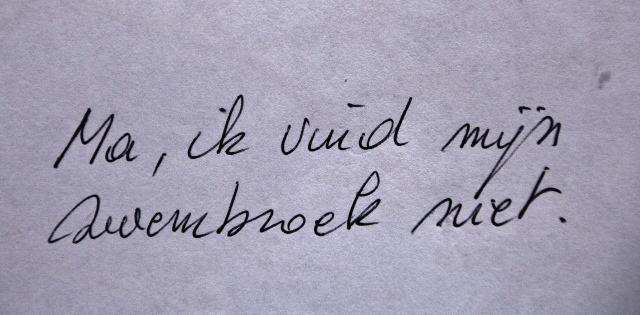 Ma, ik vind mijn
zwembroek niet.